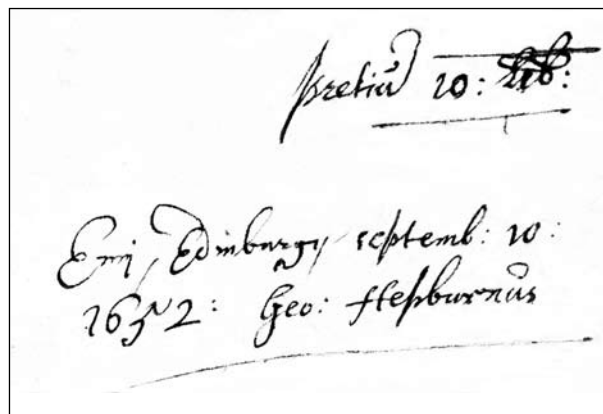 pretiū 10: Lib:
Emj Edinburgij septemb: 10:
1652: Geo: Hepburnus